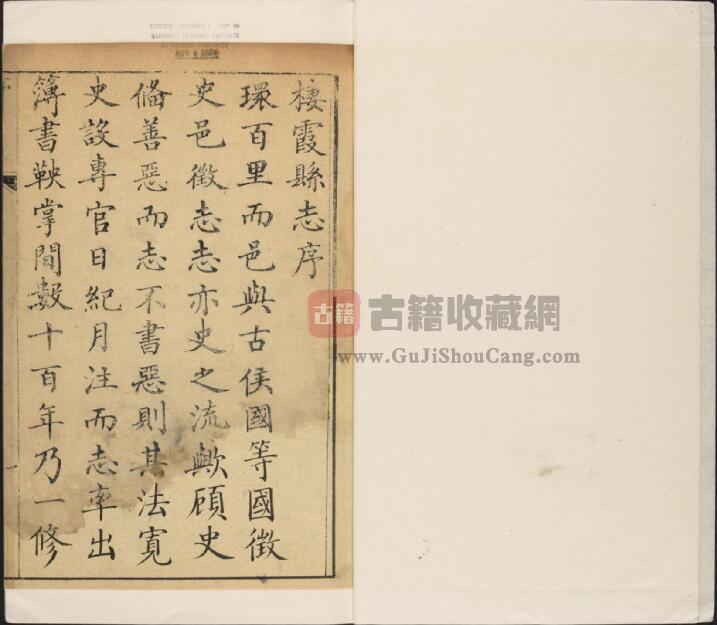 CHINESE - JAPANESE LIBRARY OF
HARVARD - YENCHING INSTITUTE
NOV 4
棲霞縣志序
環百里而邑與古侯國等國徵
史邑徵志志亦史之流歟顧史
俻善惡而志不書惡則其法寬
史設專官日紀月注而志率出
簿書鞅掌間數十百年乃一修
古籍
古籍收藏網
www.GuJiShouCang.com